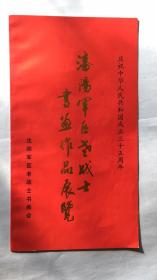 庆祝中华人民共和国成立三十五周年
沈阳军区老战士
书画作品展览
沈阳军区老战士书画会